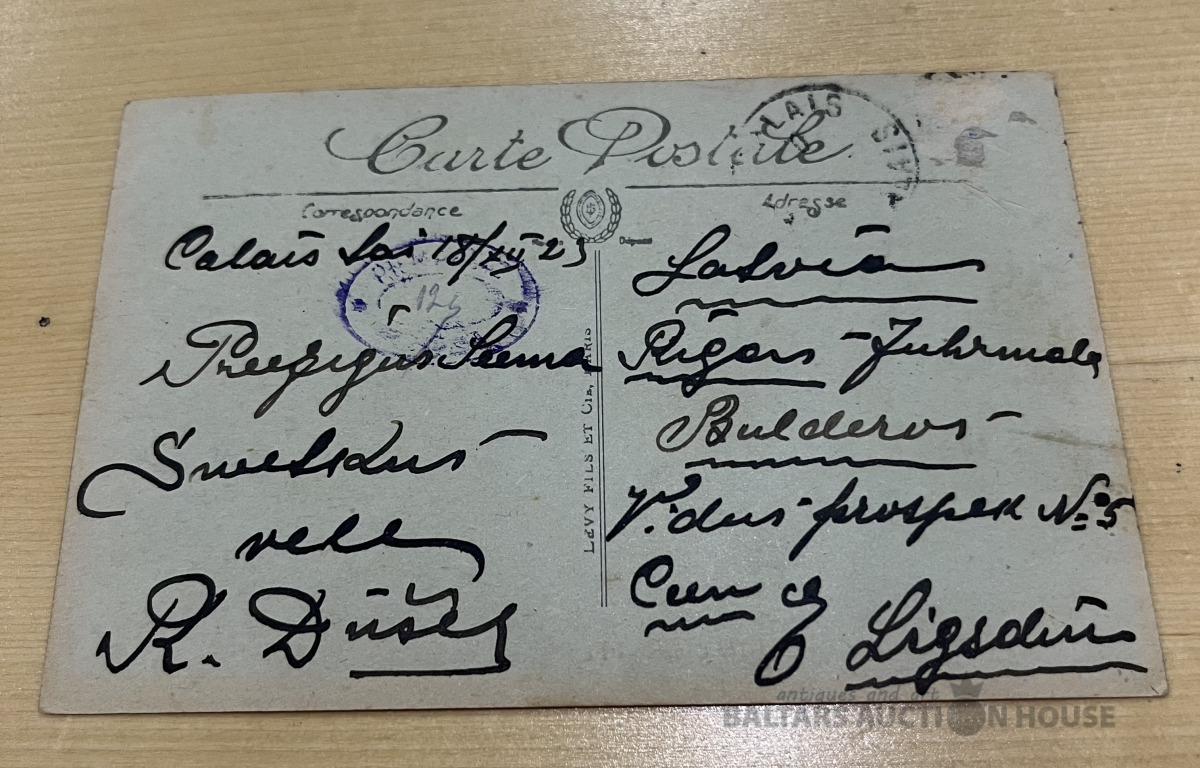 Carte Postale
CALAIS
Correspondance
Adresse
Calais 18/XII 23
Latvia
Preezigus Seema
Rigas - Juhrmala
Swetkus
Bulderos
vehl
Vidus prospek № 5
R. Dūšel
Cien
Ligsdin
LÉVY FILS ET CIE, PARIS
124
antiques and art
BALTARS AUCTION HOUSE